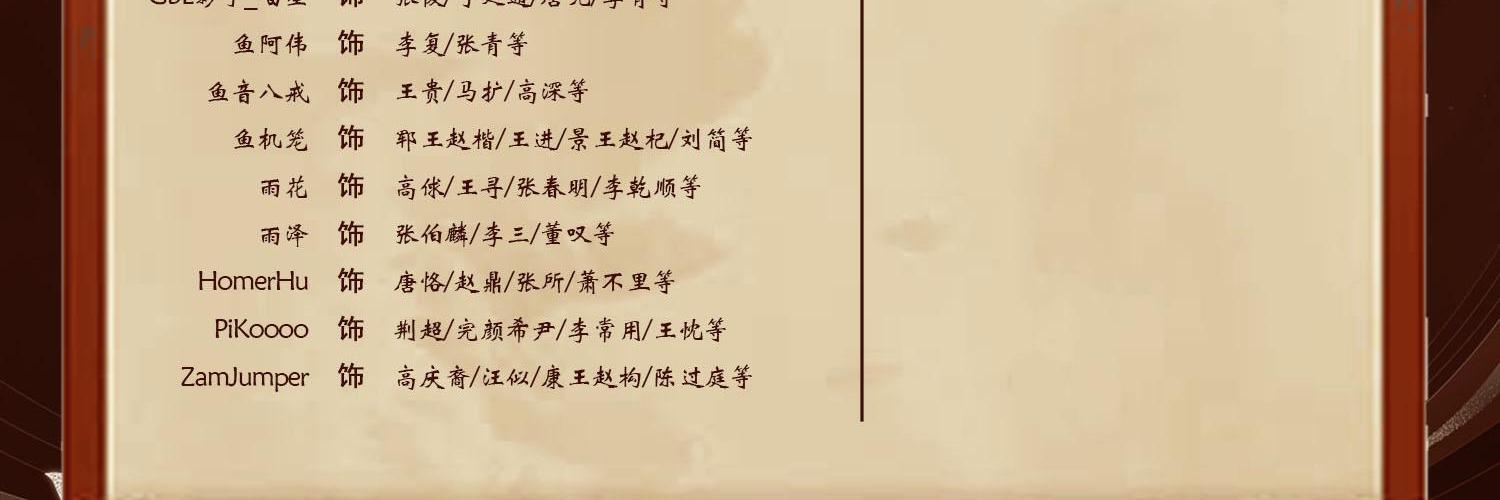 鱼阿伟 饰 李复/张青等
鱼音八戒 饰 王贵/马扩/高深等
鱼机笼 饰 郓王赵楷/王进/景王赵杞/刘简等
雨花 饰 高俅/王寻/张春明/李乾顺等
雨泽 饰 张伯麟/李三/董叹等
HomerHu 饰 唐恪/赵鼎/张所/萧不里等
PiKoooo 饰 荆超/完颜希尹/李常用/王忱等
ZamJumper 饰 高庆裔/汪似/康王赵构/陈过庭等